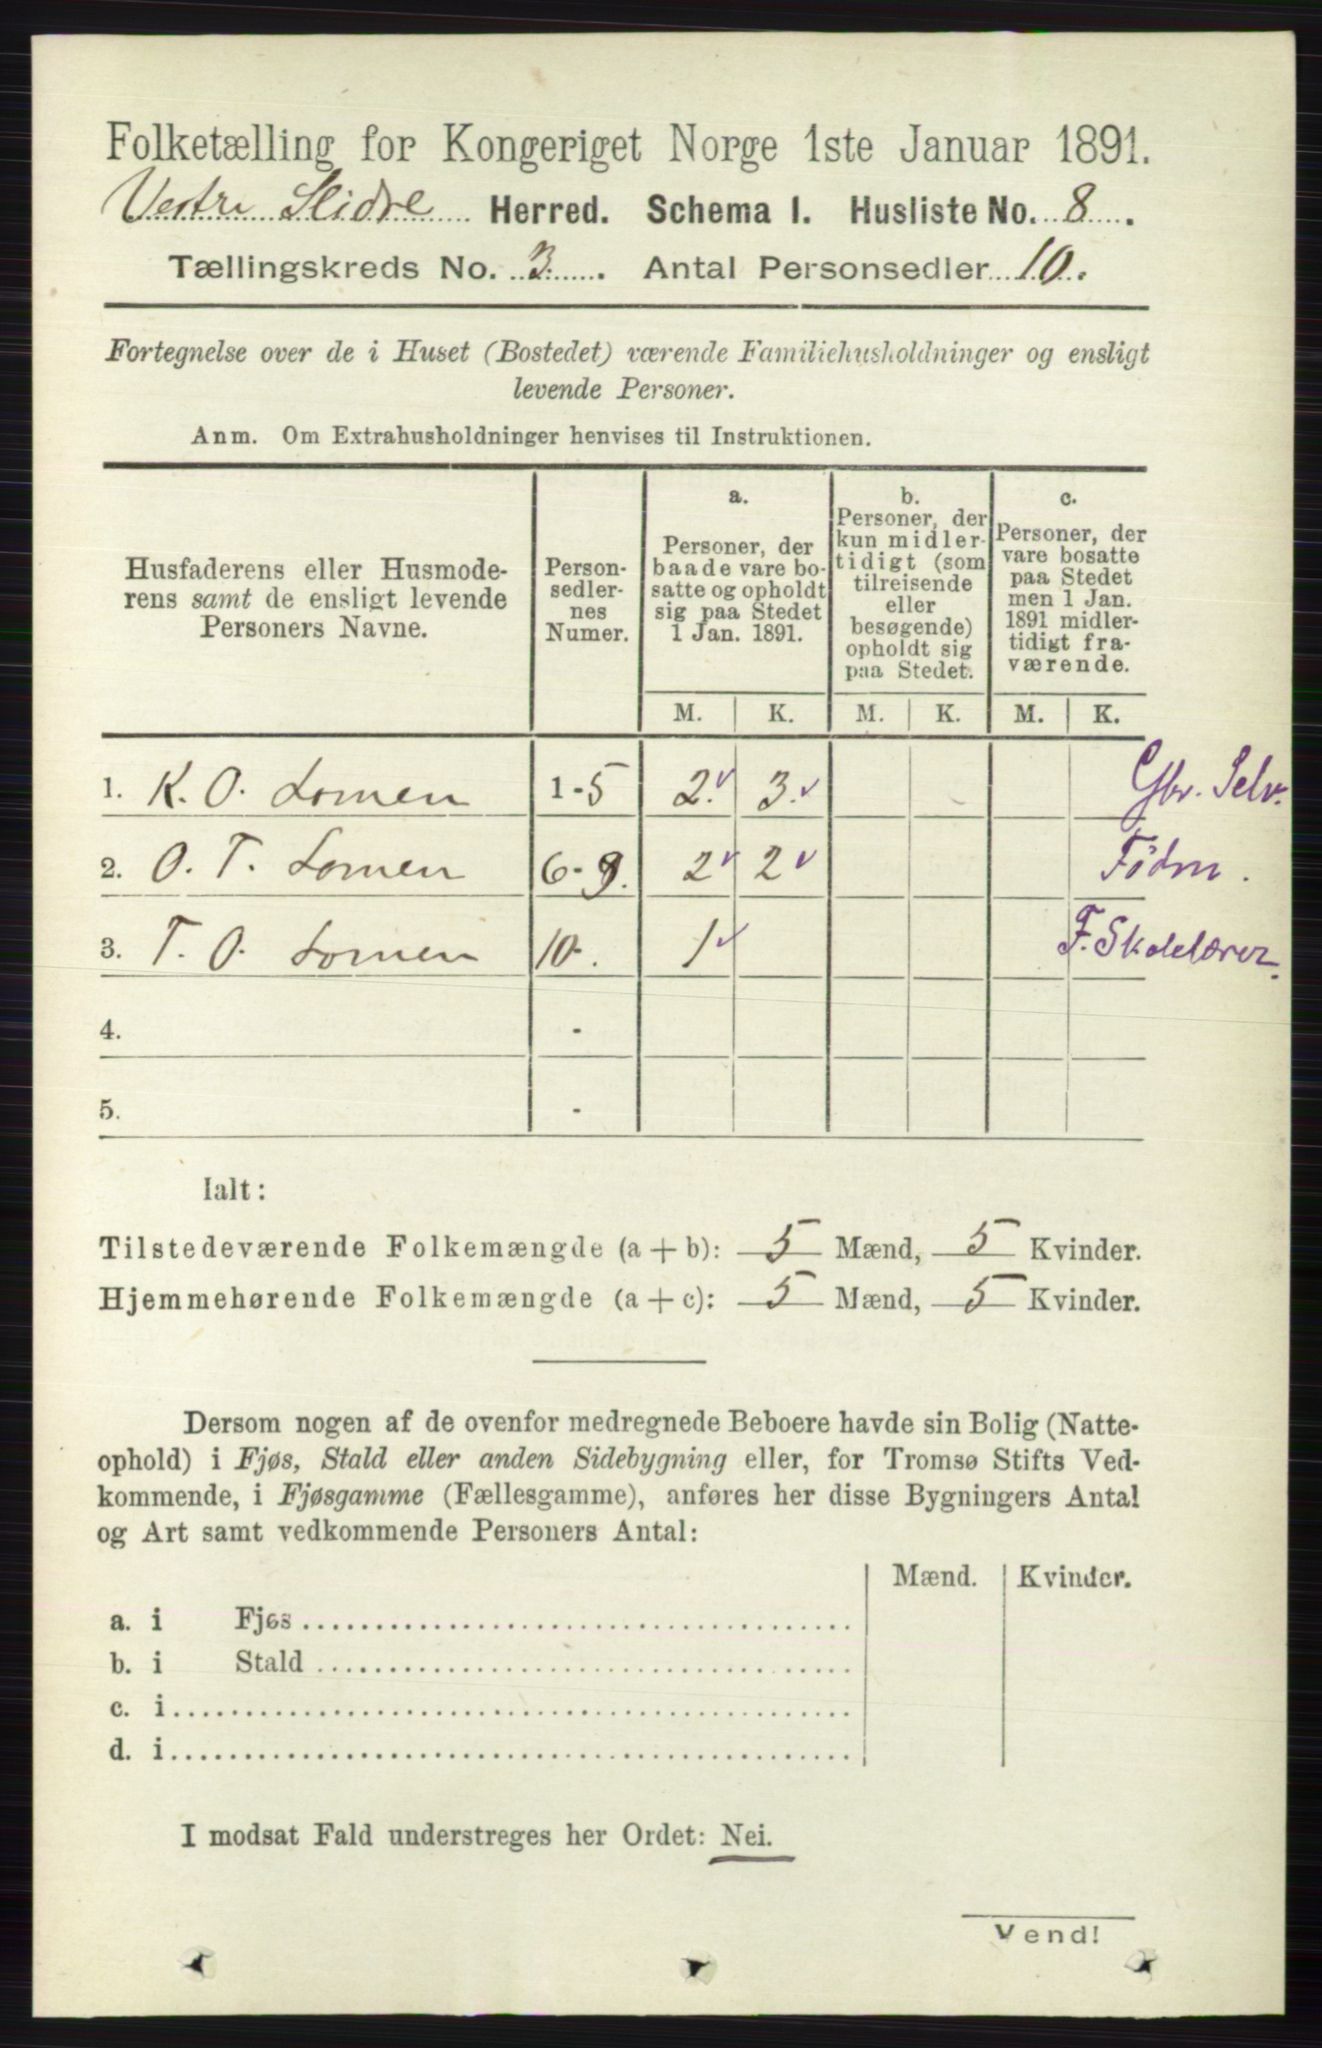 Folketælling for Kongeriget Norge 1ste Januar 1891.
Vestre Slidre Herred. Schema I. Husliste No. 8.
Tællingskreds No. 3. Antal Personsedler 10.
Fortegnelse over de i Huset (Bostedet) værende Familiehusholdninger og ensligt
levende Personer.
Anm. Om Extrahusholdninger henvises til Instruktionen.
Husfaderens eller Husmode-
rens samt de ensligt levende
Personers Navne.
Person-
sedler-
nes
Numer.
a.
Personer, der
baade vare bo-
satte og opholdt
sig paa Stedet
1 Jan. 1891.
b.
Personer, der
kun midler-
tidigt (som
tilreisende
eller
besøgende)
opholdt sig
paa Stedet.
c.
Personer, der
vare bosatte
paa Stedet
men 1 Jan.
1891 midler-
tidigt fra-
værende.
M. K. M. K. M. K.
1. K. O. Lomen 1-5 2. 3. Gbr. Selv.
2. O. T. Lomen 6-9. 2 2 Födr.
3. T. O. Lomen 10. 1 F. Skolelærer.
4. -
5. -
Ialt:
Tilstedeværende Folkemængde (a + b): 5 Mænd, 5 Kvinder.
Hjemmehørende Folkemængde (a + c): 5 Mænd, 5 Kvinder.
Dersom nogen af de ovenfor medregnede Beboere havde sin Bolig (Natte-
ophold) i Fjøs, Stald eller anden Sidebygning eller, for Tromsø Stifts Ved-
kommende, i Fjøsgamme (Fællesgamme), anføres her disse Bygningers Antal
og Art samt vedkommende Personers Antal:
Mænd. Kvinder.
a. i Fjøs
b. i Stald
c. i
d. i
I modsat Fald understreges her Ordet: Nei.
Vend!